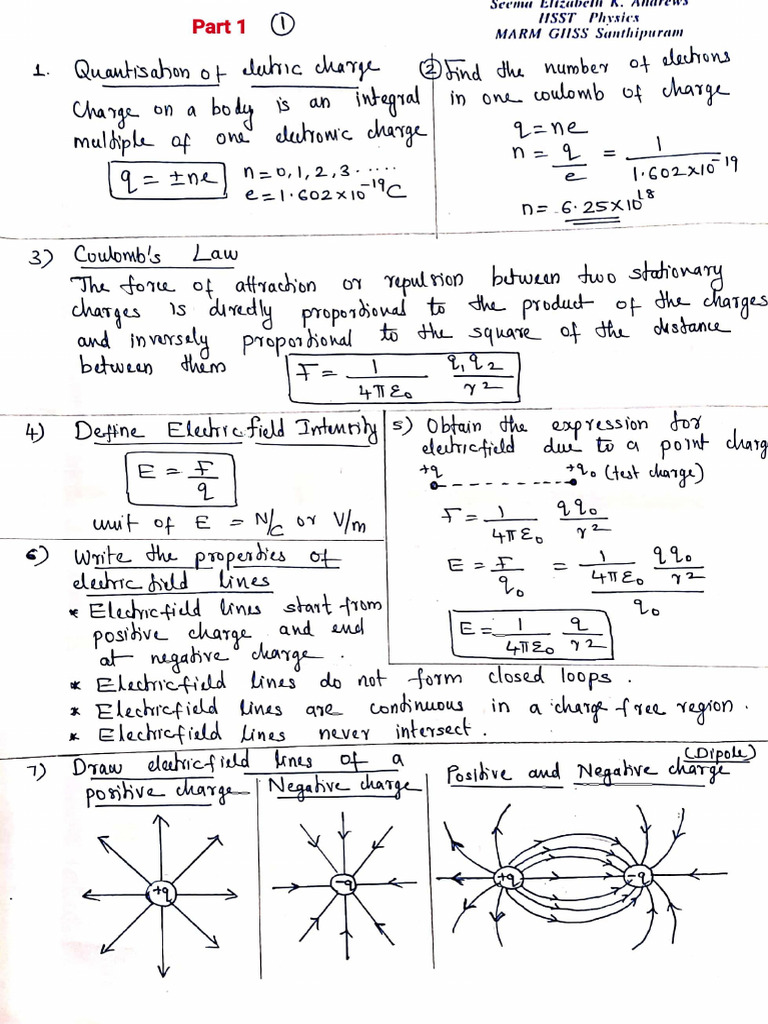 Seema Elizabeth K. Andrews
HSST Physics
MARM GHSS Santhipuram
Part 1 ①
1. Quantisation of eletric charge
Charge on a body is an integral
multiple of one electronic charge
q = ±ne n = 0, 1, 2, 3 .....
e = 1.602 × 10⁻¹⁹ C
② Find the number of electrons
in one coulomb of charge
q = ne
n = q/e = 1/1.602×10⁻¹⁹
n = 6.25×10¹⁸
3) Coulomb's Law
The force of attraction or repulsion between two stationary
charges is directly proportional to the product of the charges
and inversely proportional to the square of the distance
between them F = 1/4πε₀ q₁q₂/r²
4) Define Electric field Intensity
E = F/q
unit of E = N/C or V/m
5) Obtain the expression for
electricfield due to a point charg
+q +q₀ (test charge)
F = 1/4πε₀ qq₀/r²
E = F/q₀ = 1/4πε₀ qq₀/r² / q₀
E = 1/4πε₀ q/r²
6) Write the properties of
electric field lines
* Electricfield lines start from
positive charge and end
at negative charge.
* Electricfield lines do not form closed loops.
* Electricfield lines are continuous in a charge free region.
* Electricfield lines never intersect.
7) Draw electricfield lines of a
positive charge
Negative charge
Positive and Negative charge (Dipole)
+q
-q
+q -q